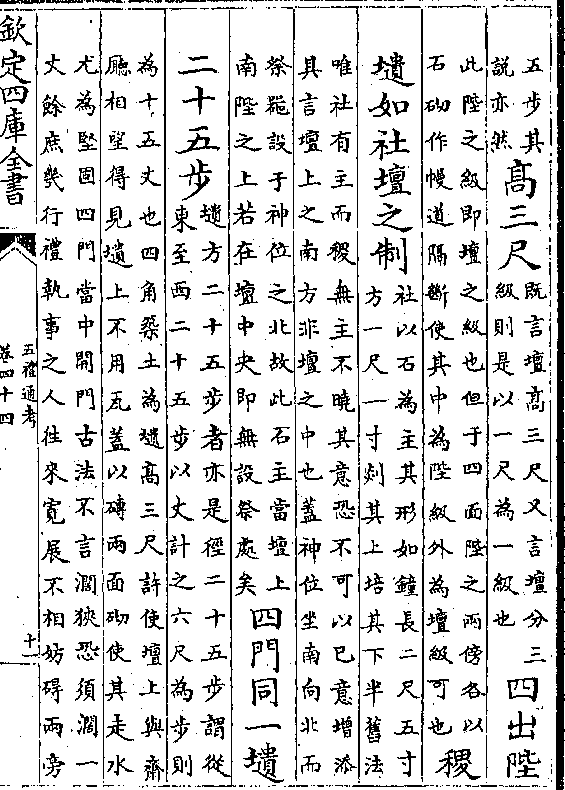 五步其
說亦然
高三尺
既言壇高三尺又言壇分三
級則是以一尺為一級也
四出陛
此陛之級即壇之級也但于四面陛之兩傍各以
石砌作幔道隔斷使其中為陛級外為壇級可也
稷
壝如社壇之制
社以石為主其形如鐘長二尺五寸
方一尺一寸剡其上培其下半舊法
唯社有主而稷無主不曉其意恐不可以已意增添
其言壇上之南方非壇之中也蓋神位坐南向北而
祭噐設于神位之北故此石主當壇上
南陛之上若在壇中央即無設祭處矣
四門同一壝
二十五步
壝方二十五步者亦是徑二十五步謂從
東至西二十五步以丈計之六尺為步則
為十五丈也四角築土為壝高三尺許使壇上與齋
廳相望得見壝上不用瓦蓋以磚兩面砌使其走水
尤為堅固四門當中開門古法不言濶狹恐須濶一
丈餘庶幾行禮執事之人往來寛展不相妨碍兩旁
欽定四庫全書
五禮通考
卷四十四
十一